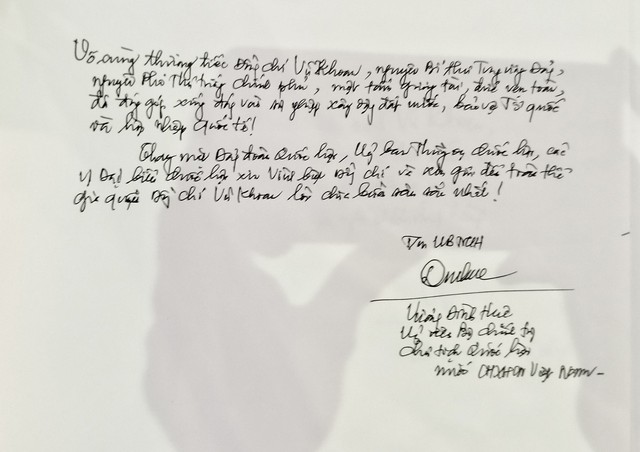 Vô cùng thương tiếc Đồng chí Vũ Khoan, nguyên Bí thư Trung ương Đảng,
nguyên Phó Thủ tướng Chính phủ, một tấm gương tài, đức vẹn toàn,
đã đóng góp xứng đáng vào sự nghiệp xây dựng đất nước, bảo vệ Tổ quốc
và hội nhập Quốc tế!
Thay mặt Đảng đoàn Quốc hội, Uỷ ban Thường vụ Quốc hội, các
vị Đại biểu Quốc hội xin vĩnh biệt Đồng chí và xin gửi đến toàn thể
gia quyến Đồng chí Vũ Khoan lời chia buồn sâu sắc nhất!
TM UBTVQH
Vương Đình Huệ
Uỷ viên Bộ Chính trị
Chủ tịch Quốc hội
nước CHXHCN Việt Nam